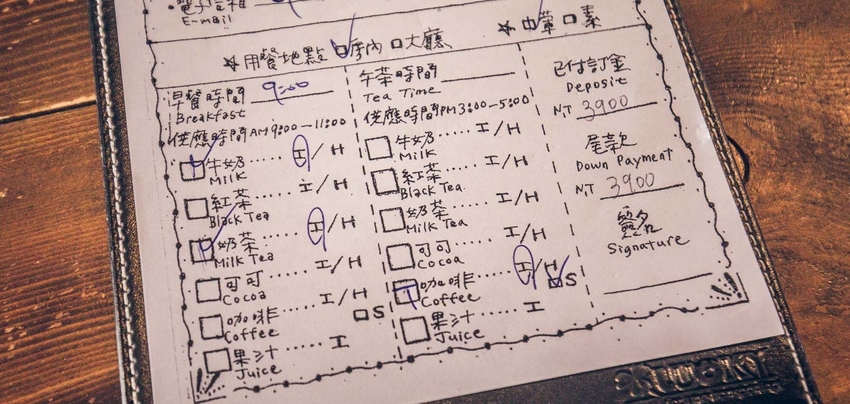 電子信箱
E-mail
☆ 用餐地點 □房內 □大廳
☆ □葷 □素
早餐時間 9:00
Breakfast
供應時間AM9:00-11:00
牛奶 ..... I/H
Milk
紅茶 ..... I/H
Black Tea
奶茶 ..... I/H
Milk Tea
可可 ..... I/H
Cocoa
咖啡 ..... I/H
Coffee □S
果汁 ..... I
Juice
午茶時間
Tea Time
供應時間PM3:00-5:00
牛奶 ..... I/H
Milk
紅茶 ..... I/H
Black Tea
奶茶 ..... I/H
Milk Tea
可可 ..... I/H
Cocoa
咖啡 ..... I/H
Coffee □S
果汁 ..... I
Juice
已付訂金
Deposit
NT 3900
尾款
Down Payment
NT 3900
簽名
Signature